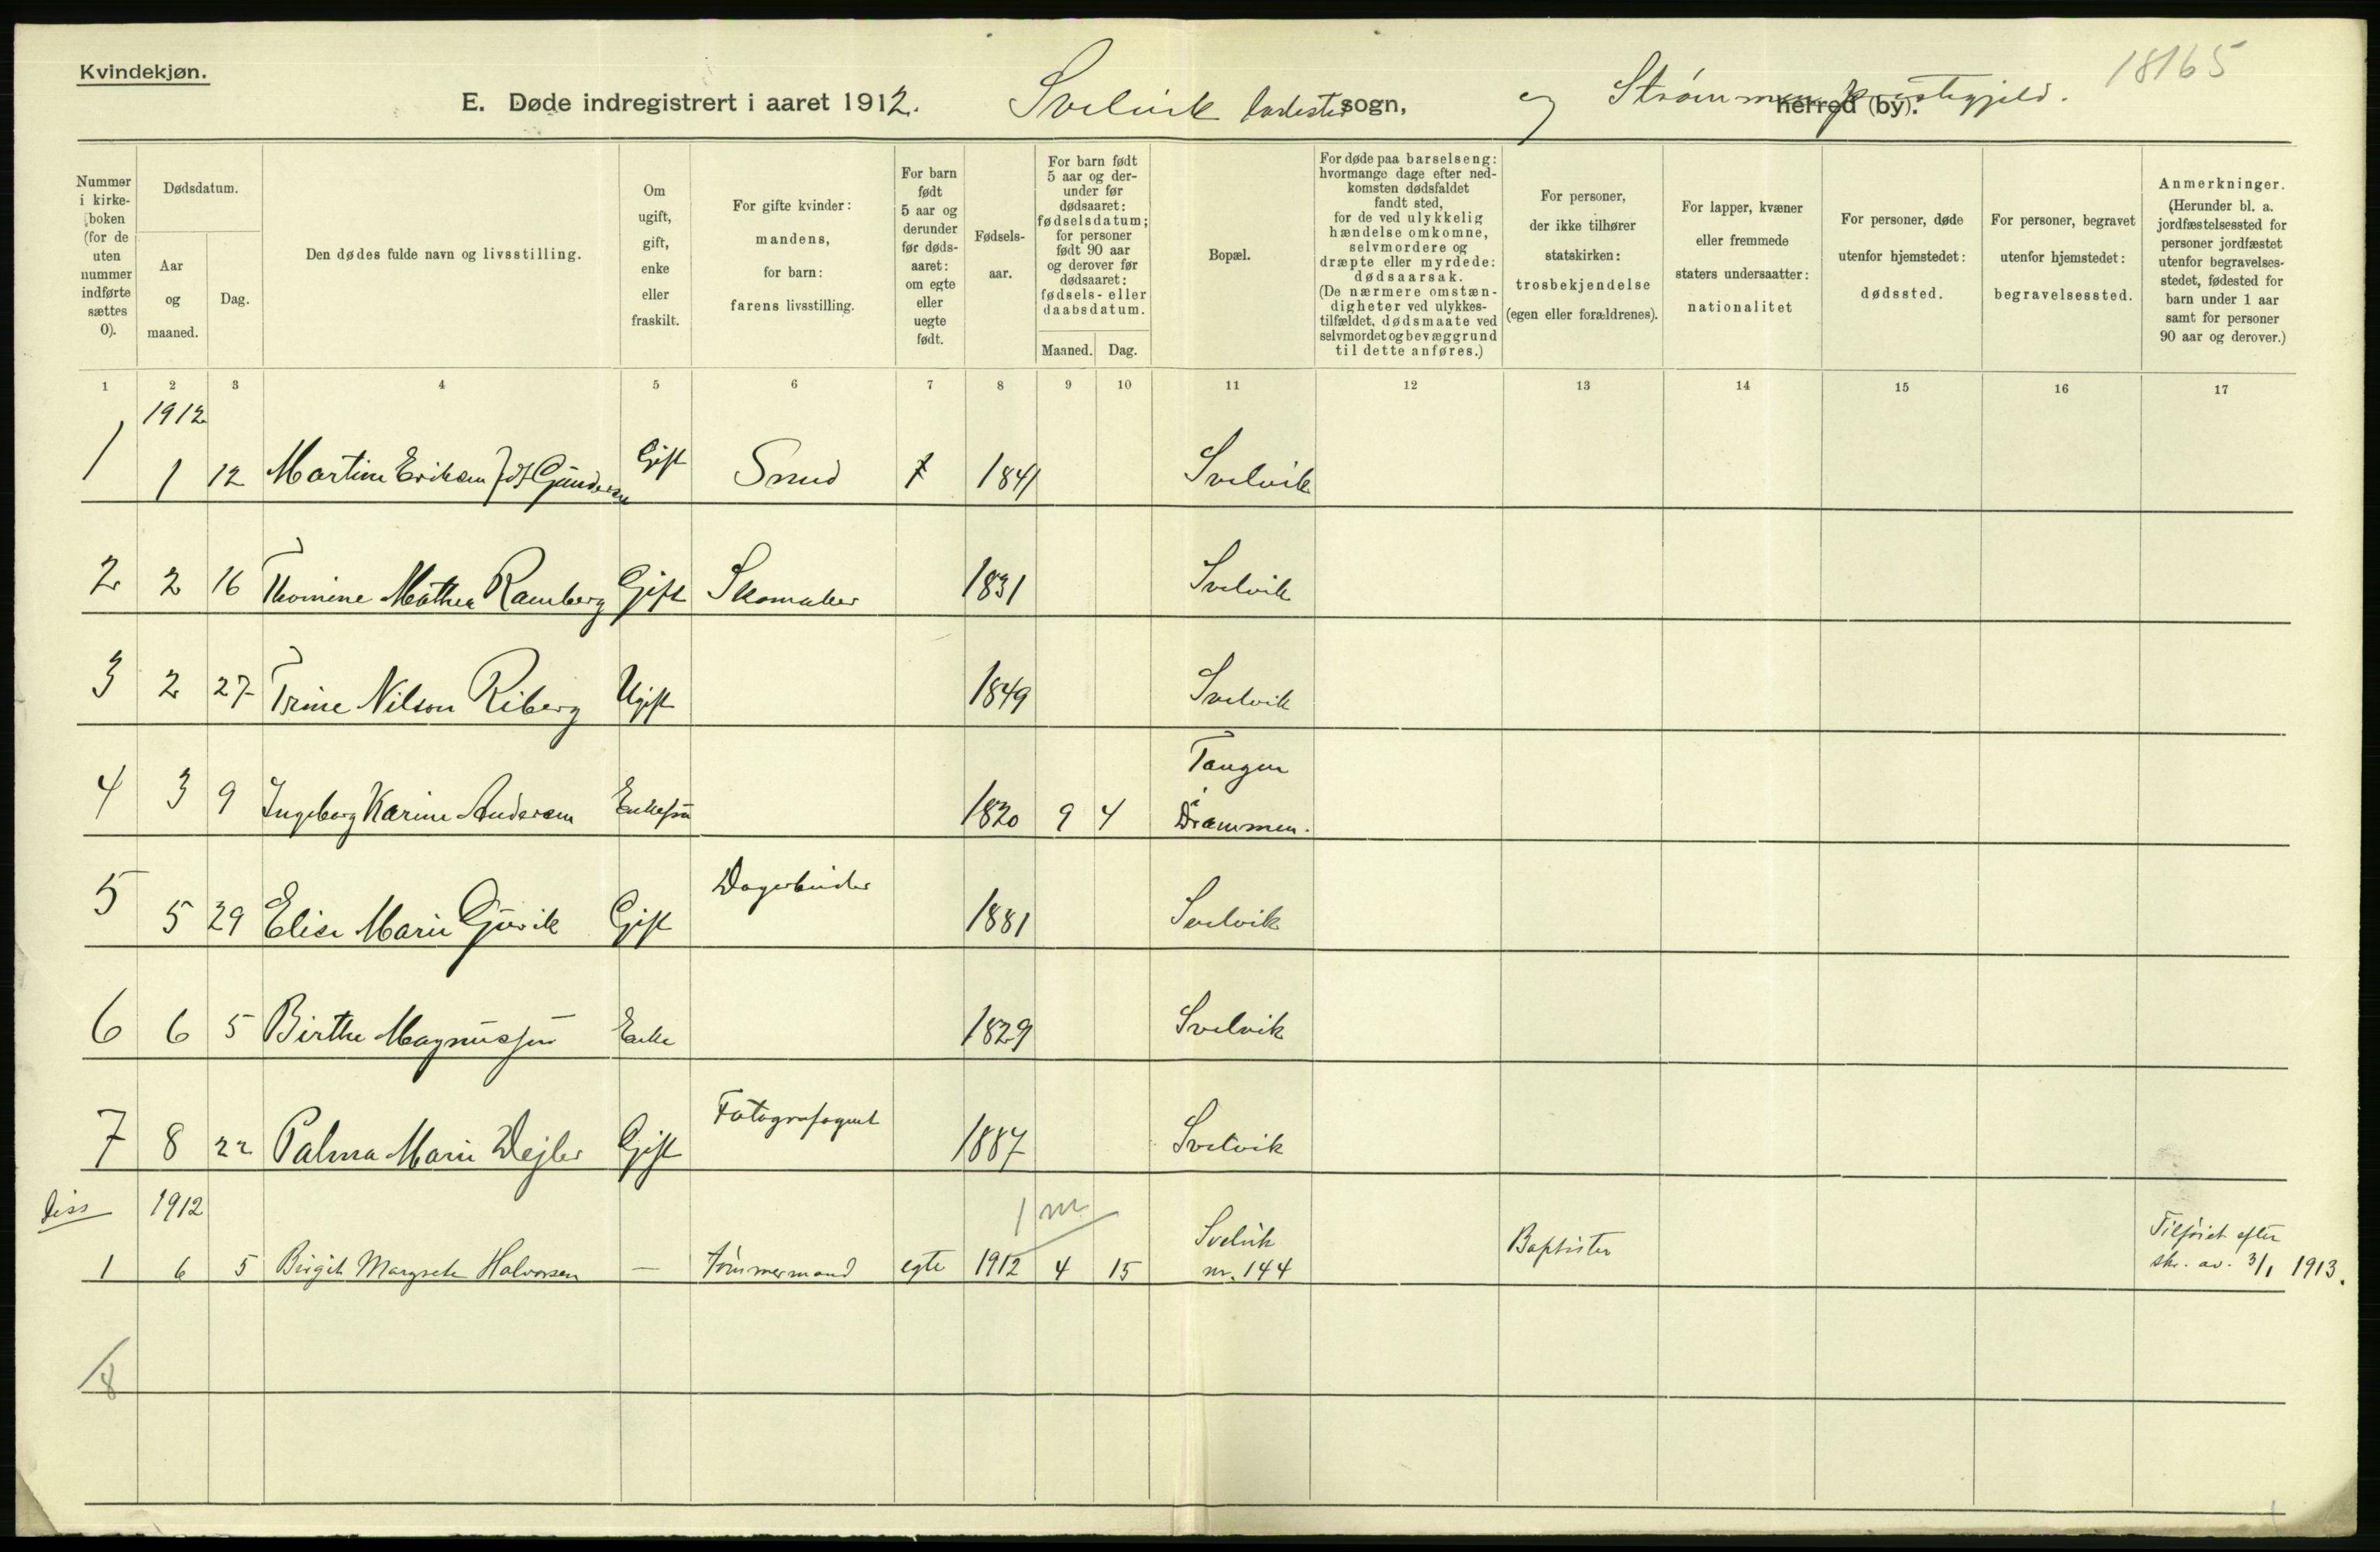 Kvindekjøn.
18165
E. Døde indregistrert i aaret 1912. Svelvik ladested sogn, og Strømmen herred (by). præstegjeld.
Nummer i kirke-boken (for de uten nummer indførte sættes 0).
Dødsdatum.
Aar og maaned.
Dag.
Den dødes fulde navn og livsstilling.
Om ugift, gift, enke eller fraskilt.
For gifte kvinder: mandens, for barn: farens livsstilling.
For barn født 5 aar og derunder før døds-aaret: om egte eller uegte født.
Fødsels-aar.
For barn født 5 aar og der-under før dødsaaret: fødselsdatum; for personer født 90 aar og derover før dødsaaret: fødsels- eller daabsdatum.
Maaned. Dag.
Bopæl.
For døde paa barselseng: hvormange dage efter ned-komsten dødsfaldet fandt sted, for de ved ulykkelig hændelse omkomne, selvmordere og dræpte eller myrdede: dødsaarsak. (De nærmere omstæn-digheter ved ulykkes-tilfældet, dødsmaate ved selvmordet og bevæggrund til dette anføres.)
For personer, der ikke tilhører statskirken: trosbekjendelse (egen eller forældrenes).
For lapper, kvæner eller fremmede staters undersaatter: nationalitet
For personer, døde utenfor hjemstedet: dødssted.
For personer, begravet utenfor hjemstedet: begravelsessted.
Anmerkninger. (Herunder bl. a. jordfæstelsessted for personer jordfæstet utenfor begravelses-stedet, fødested for barn under 1 aar samt for personer 90 aar og derover.)
1 2 3 4 5 6 7 8 9 10 11 12 13 14 15 16 17
1912
1 1 12 Martine Eriksen født Gundersen Gift Smed 1841 Svelvik
2 2 16 Thomine Mathea Ramberg Gift Skomaker 1831 Svelvik
3 2 27 Trine Nilson Riberg Ugift 1849 Svelvik
4 3 9 Ingeborg Karine Andersen Enkefru 1820 9 4 Tangen i Drammen.
5 5 29 Elise Marie Gjuvik Gift 1881 Svelvik
6 6 5 Birthe Magnussen Enke 1829 Svelvik
7 8 22 Palma Marie Wejler Gift Fotografagent 1887 Svelvik
diss 1912 1 m
1 6 5 Birgit Margrete Halvorsen — tømmermand egte 1912 4 15 Svelvik nr. 144 Baptister Tilføiet efter skr. av. 3/1 1913.
/8